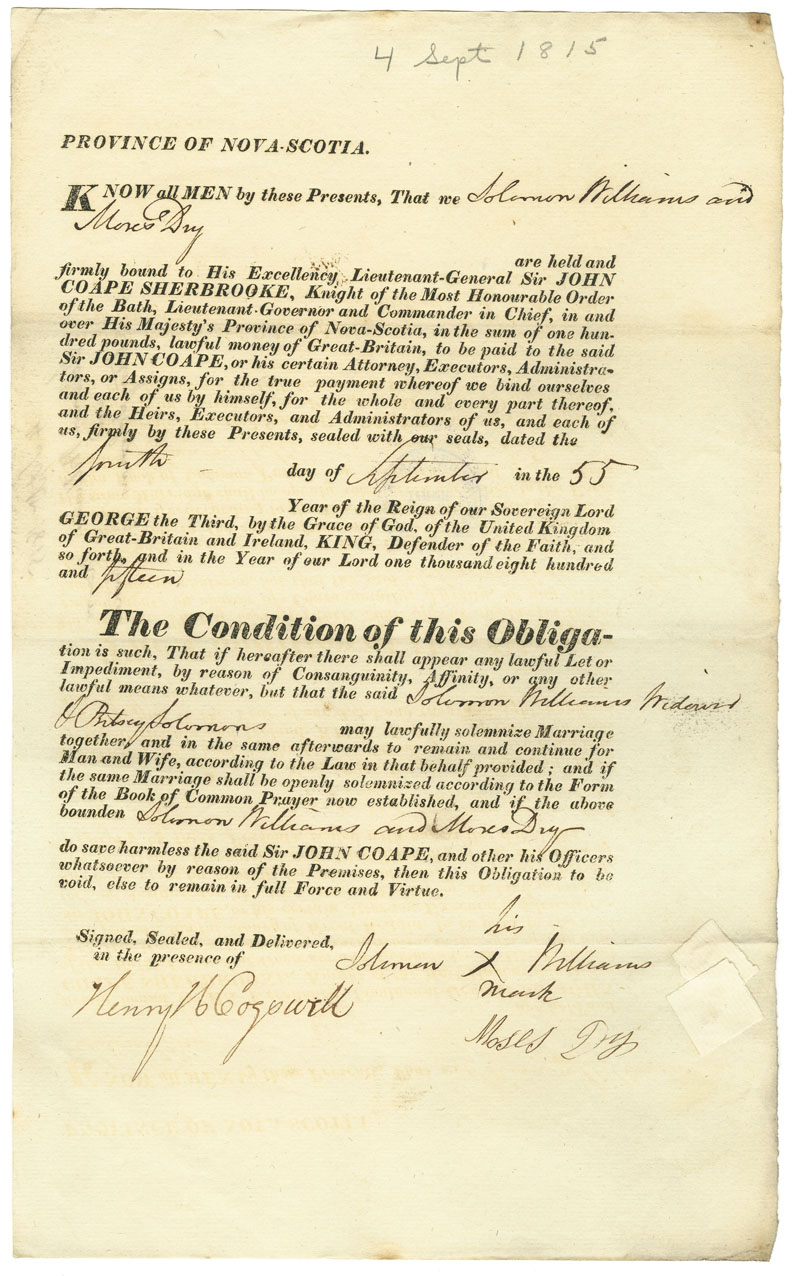 4 Sept 1815
PROVINCE OF NOVA-SCOTIA.
KNOW all MEN by these Presents, That we Solomon Williams and
Moses Dry
are held and
firmly bound to His Excellency, Lieutenant-General Sir JOHN
COAPE SHERBROOKE, Knight of the Most Honourable Order
of the Bath, Lieutenant-Governor and Commander in Chief, in and
over His Majesty's Province of Nova-Scotia, in the sum of one hun-
dred pounds, lawful money of Great-Britain, to be paid to the said
Sir JOHN COAPE, or his certain Attorney, Executors, Administra-
tors, or Assigns, for the true payment whereof we bind ourselves
and each of us by himself, for the whole and every part thereof,
and the Heirs, Executors, and Administrators of us, and each of
us, firmly by these Presents, sealed with our seals, dated the
fourth day of September in the 55
Year of the Reign of our Sovereign Lord
GEORGE the Third, by the Grace of God, of the United Kingdom
of Great-Britain and Ireland, KING, Defender of the Faith, and
so forth, and in the Year of our Lord one thousand eight hundred
and fifteen
The Condition of this Obliga-
tion is such, That if hereafter there shall appear any lawful Let or
Impediment, by reason of Consanguinity, Affinity, or any other
lawful means whatever, but that the said Solomon Williams Widower
& Betsey Solomons may lawfully solemnize Marriage
together, and in the same afterwards to remain and continue for
Man and Wife, according to the Law in that behalf provided; and if
the same Marriage shall be openly solemnized according to the Form
of the Book of Common Prayer now established, and if the above
bounden Solomon Williams and Moses Dry
do save harmless the said Sir JOHN COAPE, and other his Officers
whatsoever by reason of the Premises, then this Obligation to be
void, else to remain in full Force and Virtue.
his
Signed, Sealed, and Delivered,
in the presence of
Solomon X Williams
mark
Henry H Cogswell
Moses Dry